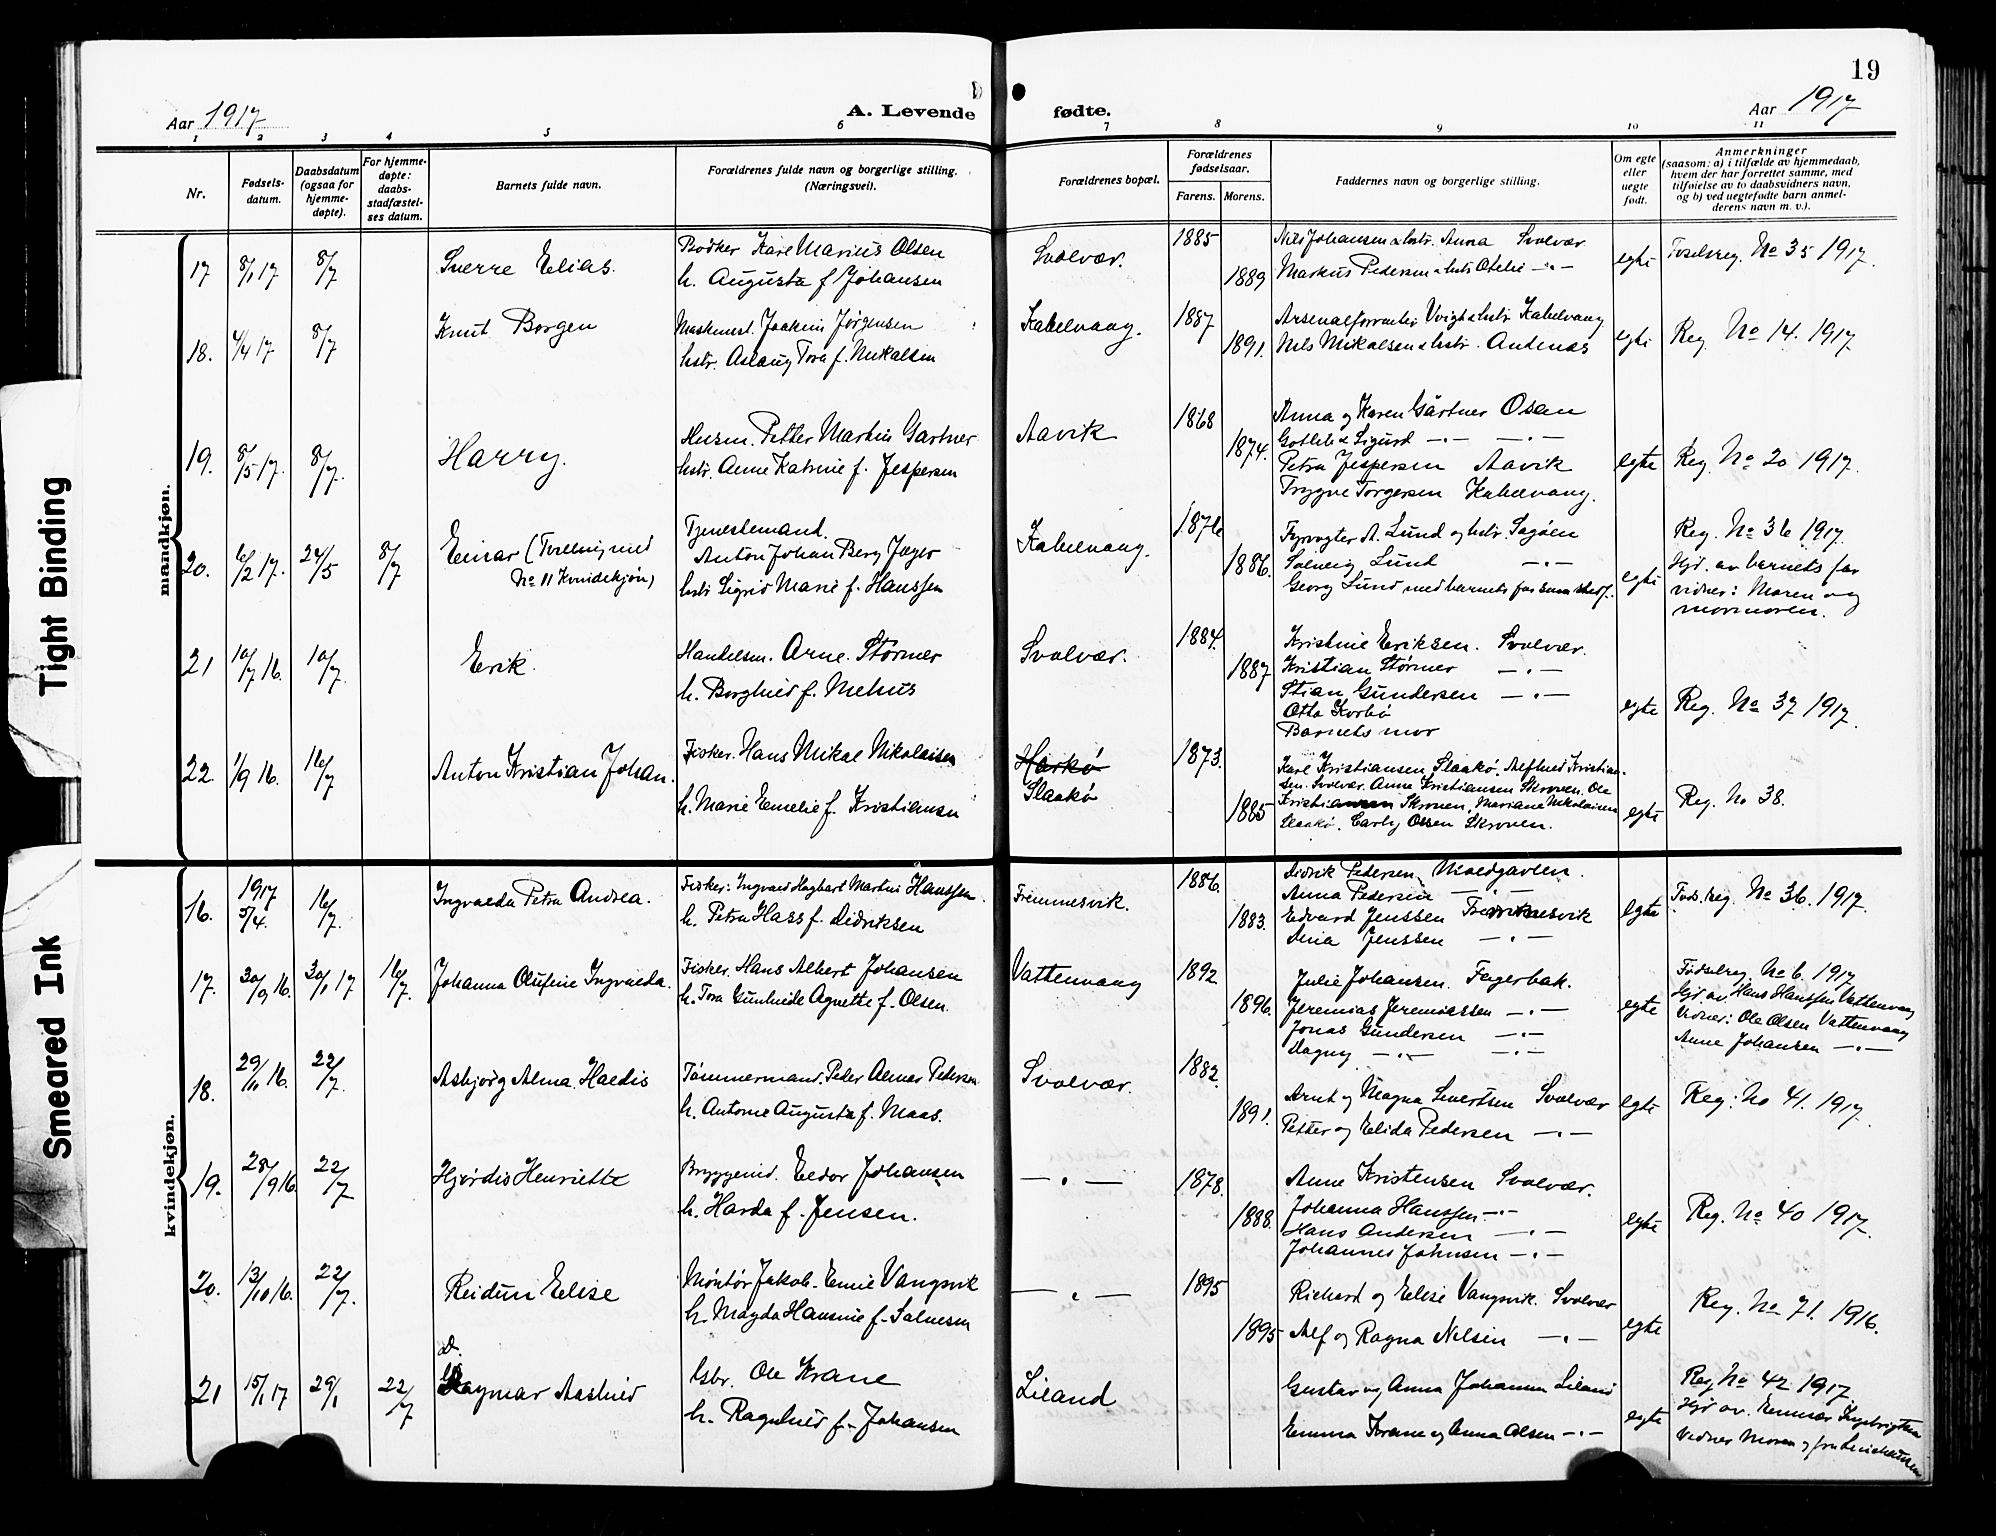 19
Aar 1917
A. Levende fødte.
Aar 1917
1 2 3 4 5 6 7 8 9 10 11
Nr.
Fødsels-
datum.
Daabsdatum
(ogsaa for
hjemme-
døpte).
For hjemme-
døpte:
daabs-
stadfæstel-
ses datum.
Barnets fulde navn.
Forældrenes fulde navn og borgerlige stilling.
(Næringsvei).
Forældrenes bopæl.
Forældrenes
fødselsaar.
Farens. Morens.
Faddernes navn og borgerlige stilling.
Om egte
eller
uegte
født.
Anmerkninger
(saasom: a) i tilfælde av hjemmedaab,
hvem der har forrettet samme, med
tilføielse av to daabsvidners navn,
og b) ved uegtefødte barn anmel-
derens navn m. v.).
mandkjøn.
17 8/1 17 8/7 Sverre Elias.
Bødker Kare Marius Olsen
h. Augusta f. Johansen
Svolvær. 1885 1889
Nils Johansen & hstr. Anna Svolvær
Markus Pedersen & hstr Otelie -"-
egte
Fødselsreg. No 35 1917.
18. 4/4 17 8/7 Knut Borgen
Maskinist. Joakim Jørgensen
hstr. Aslaug Tora f. Mikalsen
Kabelvaag. 1887 1891.
Arsenalforvalter Voigt & hstr Kabelvaag
Nils Mikalsen & hstr. Andenæs
egte
Reg. No 14. 1917
19. 8/5 17. 8/7. Harry.
Husm. Petter Martin Gartner
hstr. Anne Katrine f. Jespersen
Aavik 1868 1874.
Anna og Karen Gärtner Osan
Gotlib & Sigurd -"- -"-
Petra Jespersen Aavik
Trygve Torgersen Kabelvaag.
egte
Reg. No 20 1917.
20. 6/2 17. 24/5 8/7 Einar (Tvilling med
No 11 Kvindekjøn)
Tjenestemand.
Anton Johan Berg Jæger
hstr Sigrid Marie f. Hanssen
Kabelvaag. 1876 1886.
Fyrvogter A. Lund og hstr. Sagøen
Solveig Lund -"-
Georg Lund med barnets far
egte
Reg. No 36 1917.
Hjd. av barnets far
vidner: Moren og
mormoren.
21 10/7 16. 10/7. Erik.
Handelsm. Arne. Størmer
h. Borghild f. Mehus
Svolvær. 1884. 1887
Kristine Eriksen. Svolvær.
Kristian Størmer -"-
Stian Gundersen -"-
Otto Korbø
Barnets mor
egte
Reg. No 37 1917.
22. 1/9 16. 16/7 Anton Kristian Johan.
Fisker. Hans Mikal Nikolaisen
h. Marie Emelie f. Kristiansen
Harkø
Slaakø
1873. 1885
Karl Kristiansen Slaakø. Alfhild Kristian-
sen. Svolvær. Anne Kristiansen Skroven. Ole
Kristiansen Skroven, Mariane Nikolaisen
Slaakø. Carly Olsen Skroven.
egte
Reg. No 38.
kvindekjøn.
16. 1917 5/4. 16/7. Ingvalda Petra Andrea.
Fisker: Ingvald Hagbart Martin Hanssen.
h. Petra Hass f. Didriksen
Fremnesvik. 1886. 1883.
Didrik Pedersen
Anna Pedersen -"-
Edvard Jenssen Fremnesvik
Dina Jenssen -"-
egte
Føds.reg. No 36. 1917.
17. 30/9 16. 30/1 17 16/7. Johanna Olufine Ingvalda.
Fisker. Hans Albert Johansen
h. Tora Gunhilde Agnette f. Olsen.
Vattenvaag 1892 1896.
Julie Johansen. Fagerbak.
Jeremias Jeremiassen -"-
Jonas Gundersen -"-
Dagny -"- -"-
egte
Fødselreg. No 6. 1917
Hjd. av. Hans Hanssen Vattenvaag
Vidner: Ole Olsen Vattenvaag
Anne Johansen -"-
18. 29/11 16. 22/7. Asbjørg Alma. Haldis
Tømmermand. Peder Almar Pedersen
h. Antonie Augusta f. Maas.
Svolvær. 1882. 1891.
Arnt og Magna Sivertsen Svolvær
Petter og Elida Pedersen -"-
egte
Reg: No 41. 1917.
19. 28/9 16. 22/7 Hjørdis Henriette
Bryggemd. Eldor Johansen
h. Harda f. Jensen.
-"- 1878. 1888.
Anne Kristensen Svolvær.
Johanna Hanssen -"-
Hans Andersen -"-
Johannes Johnsen -"-
egte
Reg. No 40 1917.
20. 13/10 16. 22/7. Reidun Elise
Montør Jakob. Emil Vangsvik
h. Magda Hansine f. Salnesen
-"- 1895 1895
Richard og Elise Vangsvik. Svolvær
Alf og Ragna Nilsen -"-
egte
Reg. No 71. 1916.
21 15/1 17 29/1 22/7 D.
Dagmar Aashild
Gbr. Ole Krane
h. Ragnhild f. Johansen
Liland
Gustav og Anna Johanna Liland
Emma Krane og Anna Olsen -"-
egte
Reg No 42 1917
Hjd av.
Vidner Moren
Tight Binding
Smeared Ink